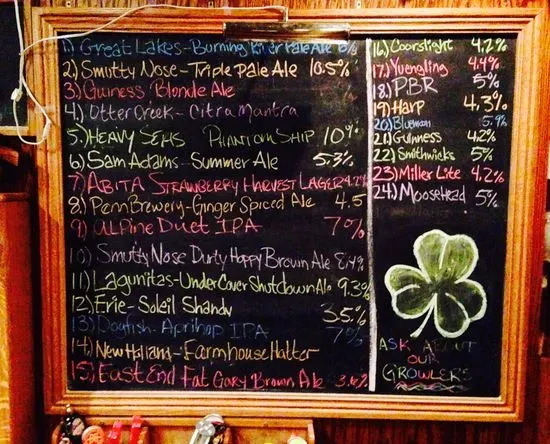 1) Great Lakes - Burning River Pale Ale 6%
2.) Smutty Nose - Triple Pale Ale 10.5%
3.) Guiness Blonde Ale
4.) Otter Creek - Citra Mantra
5.) HEAVY SEAS PHANTOM SHIP 10%
6.) Sam Adams - Summer Ale 5.3%
7.) ABITA STRAWBERRY HARVEST LAGER 4.2%
8.) Penn Brewery - Ginger Spiced Ale 4.5
9.) ALPINE DUET IPA 7%
10.) Smutty Nose Durty Hoppy Brown Ale 8.4%
11.) Lagunitas - Under Cover Shutdown Ale 9.3%
12.) Erie - Soleil Shandy 3.5%
13.) Dogfish - Aprihop IPA 7%
14.) New Holland - Farmhouse Hatter
15.) East End Fat Gary Brown Ale 3.6%
16.) Coorslight 4.2%
17.) Yuengling 4.4%
18.) PBR 5%
19.) Harp 4.3%
20.) Bluemoon 5.9%
21.) Guinness 4.2%
22.) Smithwicks 5%
23.) Miller Lite 4.2%
24.) Moosehead 5%
ASK ABOUT
OUR
GROWLERS